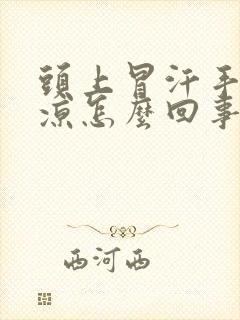 頭上冒汗手
涼怎麼回事
西河西